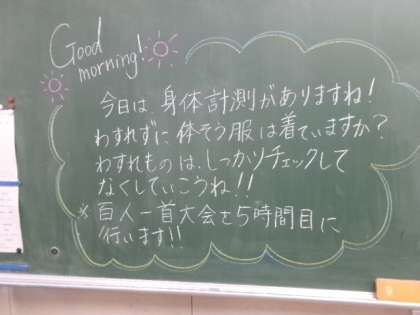 Good
morning!
今日は 身体計測がありますね!
わすれずに 体そう服は着ていますか?
わすれものは、しっかりチェックして
なくしていこうね!!
※百人一首大会を5時間目に
行います!!